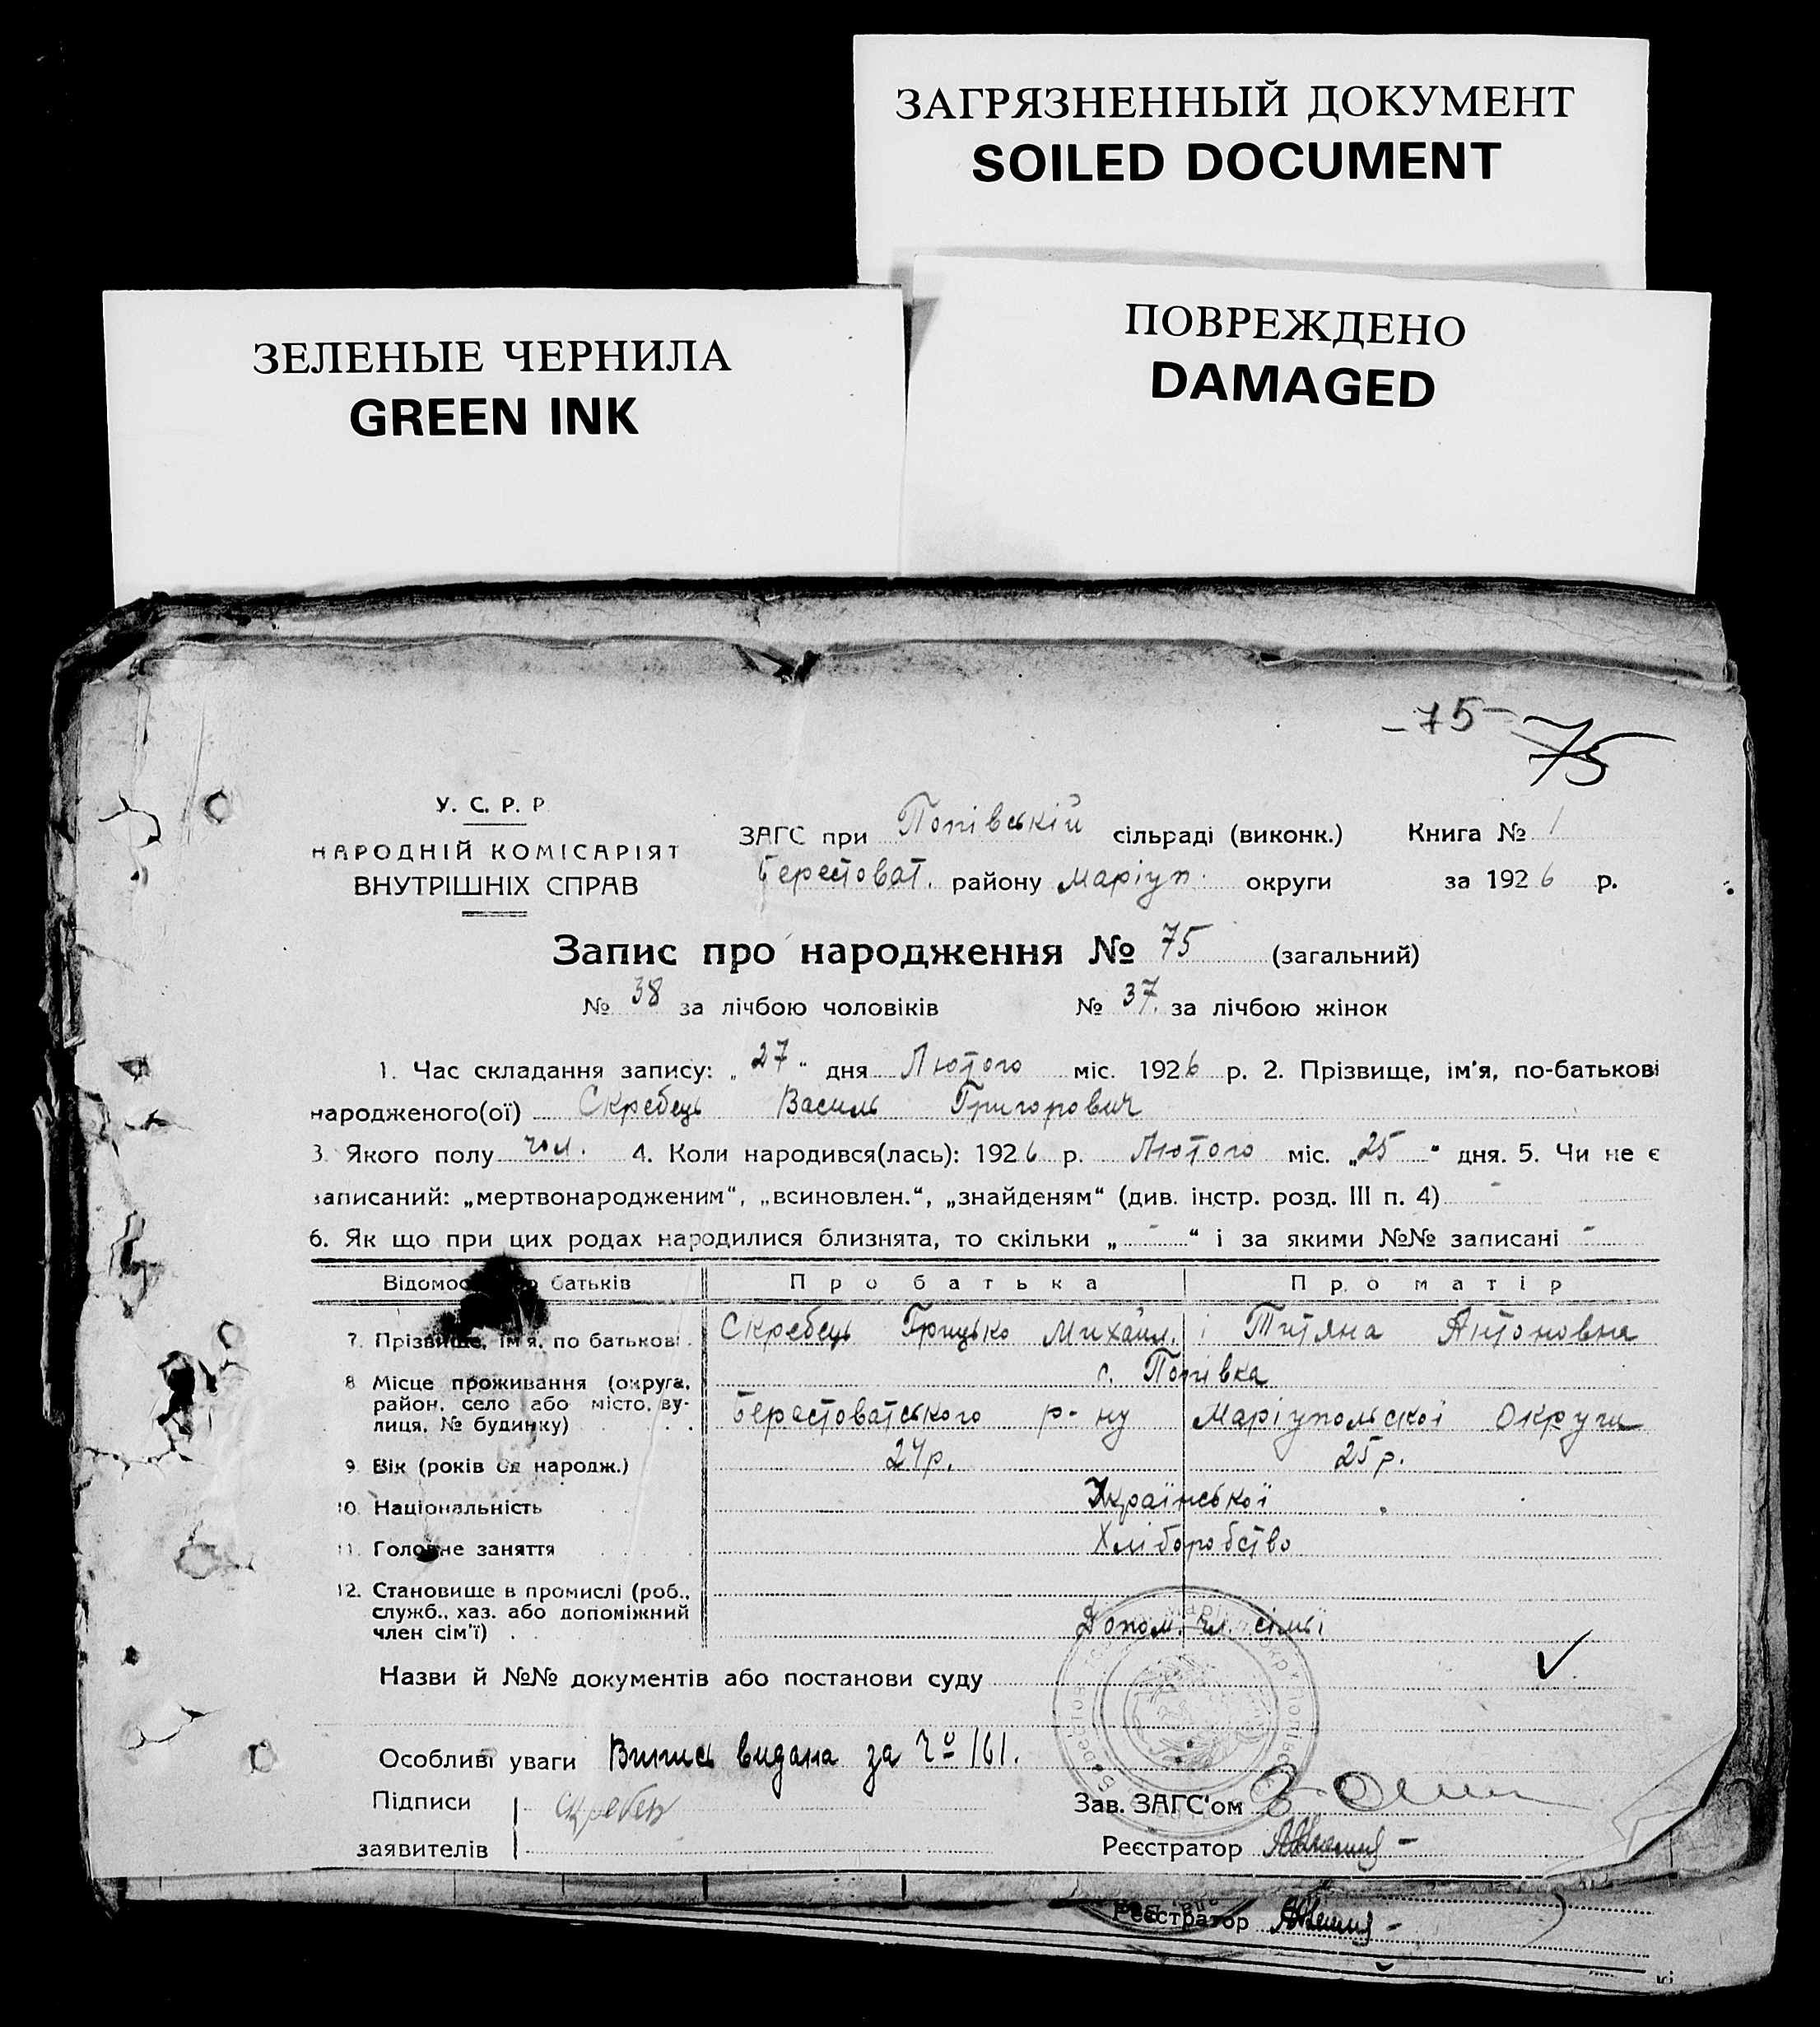 ЗАГРЯЗНЕННЫЙ ДОКУМЕНТ
SOILED DOCUMENT
ЗЕЛЕНЫЕ ЧЕРНИЛА
GREEN INK
ПОВРЕЖДЕНО
DAMAGED
-75-
75
У. С. Р. Р
НАРОДНІЙ КОМІСАРІЯТ
ВНУТРІШНІХ СПРАВ
ЗАГС при Попівській сільраді (виконк.) Книга № 1
Берестоват. району Маріуп. округи за 1926 р.
Запис про народження № 75 (загальний)
№ 38 за лічбою чоловіків № 37 за лічбою жінок
1. Час складання запису: „27“ дня Лютого міс. 1926 р. 2. Прізвище, ім'я, по-батькові
народженого(ої) Скребець Василь Григорович
3. Якого полу чол. 4. Коли народився(лась): 1926 р. Лютого міс. „25“ дня. 5. Чи не є
записаний: „мертвонародженим“, „всиновлен.“, „знайденям“ (див. інстр. розд. III п. 4) -
6. Як що при цих родах народилися близнята, то скільки „-“ і за якими №№ записані -
Відомос батьків Про батька Про матір
7. Прізвище, ім'я, по батькові Скребець Грицько Михайл. і Титяна Антоновна
8 Місце проживання (округа, район, село або місто, вулиця, № будинку) с. Попівка
Берестоватського р-ну Маріупольскої Округи
9. Вік (років од народж.) 24 р. 25 р.
10. Національність Української
11. Головне заняття Хліборобство
12. Становище в промислі (роб., служб., хаз. або допоміжний член сім'ї) Допом. чл. сімьї
Назви й №№ документів або постанови суду
Особливі уваги Випись видана за № 161.
Підписи заявителів Скребец
Зав. ЗАГС'ом
Реєстратор
Реєстратор